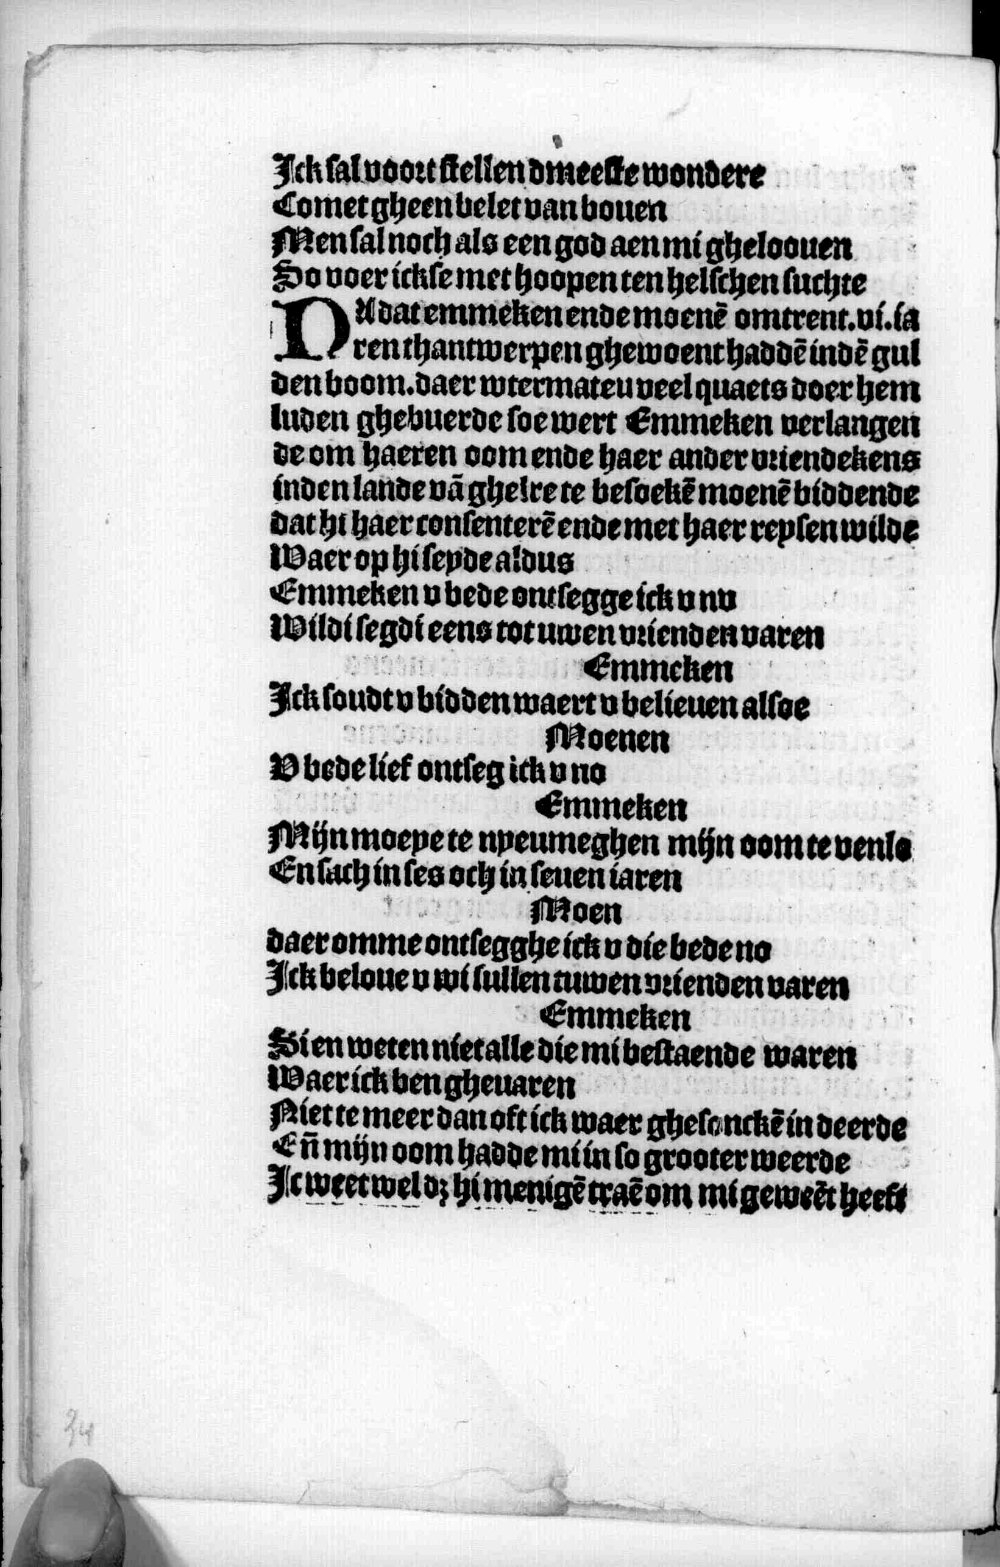 Ick sal voort stellen dmeeste wondere
Comet gheen belet van bouen
Men sal noch als een god aen mi gheloouen
So voer ickse met hoopen ten helschen suchte
NU dat emmeken ende moenē omtrent .vi. ia
ren thantwerpen ghewoent haddē in dē gul
den boom. daer wtermateu veel quaets doer hem
luden ghebuerde soe wert Emmeken verlangen
de om haeren oom ende haer ander vriendekens
inden lande vā ghelre te besoekē moenē biddende
dat hi haer consenterē ende met haer reysen wilde
Waer op hi seyde aldus
Emmeken v bede ontsegge ick v nv
Wildi segdi eens tot uwen vrienden varen
Emmeken
Ick soudt v bidden waert v belieuen alsoe
Moenen
V bede lief ontseg ick v no
Emmeken
Mijn moeye te nyeumeghen mijn oom te venlo
En sach in ses och in seuen iaren
Moen
daer omme ontsegghe ick v die bede no
Ick beloue v wi sullen tuwen vrienden varen
Emmeken
Si en weten niet alle die mi bestaende waren
Waer ick ben gheuaren
Niet te meer dan oft ick waer ghesonckē in deerde
Eñ mijn oom hadde mi in so grooter weerde
Ic weet wel dꝫ hi menigē traē om mi geweēt heeft
34